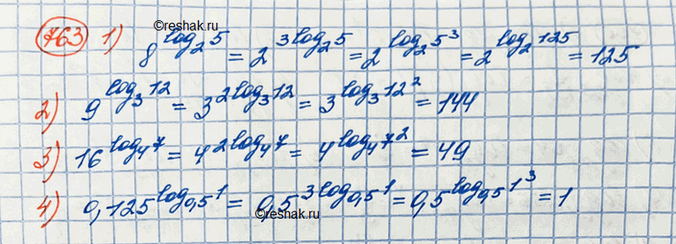 ©reshak.ru
763 1) 8^{log_2 5} = 2^{3 log_2 5} = 2^{log_2 5^3} = 2^{log_2 125} = 125
2) 9^{log_3 12} = 3^{2 log_3 12} = 3^{log_3 12^2} = 144
3) 16^{log_4 7} = 4^{2 log_4 7} = 4^{log_4 7^2} = 49
4) 0,125^{log_{0,5} 1} = 0,5^{3 log_{0,5} 1} = 0,5^{log_{0,5} 1^3} = 1
©reshak.ru